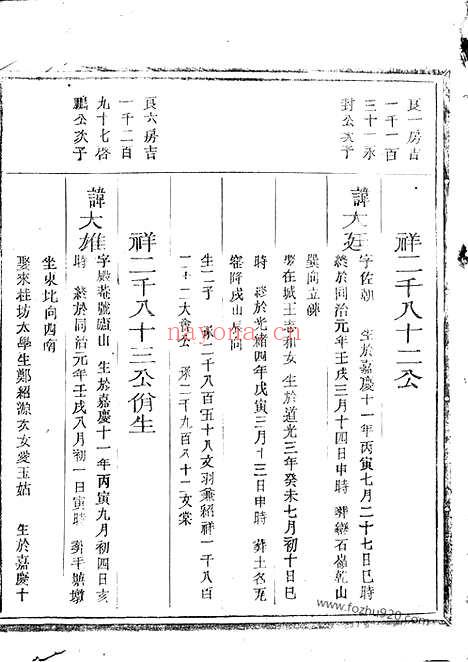 良一房吉
一千一百
三十一永
封公次子
祥二千八十二公
諱大廷字佐朝 生於嘉慶十一年丙寅七月二十七日巳時
終於同治元年壬戌三月十四日申時 葬 石嶺乾山
巽向立碑
娶在城王 女 生於道光三年癸未七月初十日巳
時 終於光緒四年戊寅三月十三日申時 葬土名
降戌山 向
生二子 孫二千八百五十八文羽兼紹祥一千八百
二大 公 孫二千九百八十二文棠
良六房吉
一千二百
九十七啓
鵬公次子
祥二千八十三公佾生
諱大雄字殿 號廬山 生於嘉慶十一年丙寅九月初四日亥
時 終於同治元年壬戌八月初一日寅時 葬平 墩
坐東北向西南
娶來桂坊太學生鄭紹源次女愛玉姑 生於嘉慶十
nayona.cn
www.fozhu920.com